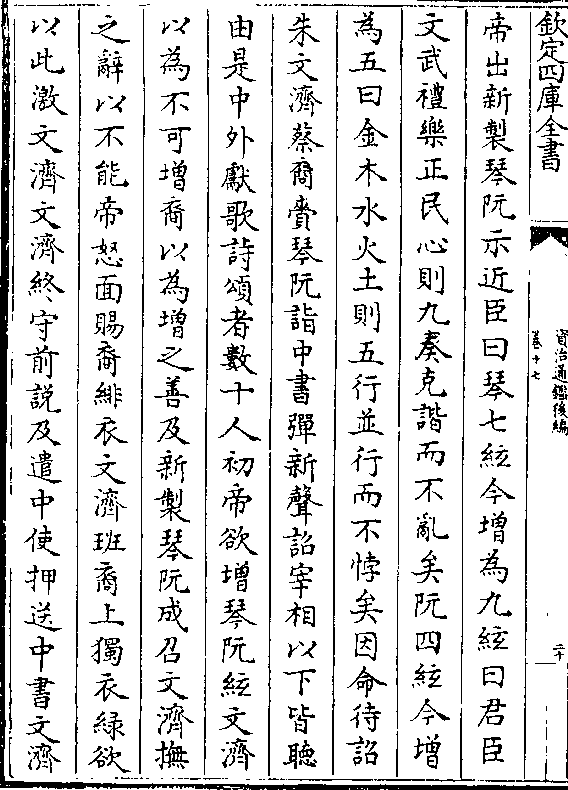 欽定四庫全書
資治通鑑後編
卷十七
二十
帝出新製琴阮示近臣曰琴七絃今增為九絃曰君臣
文武禮樂正民心則九奏克諧而不亂矣阮四絃今增
為五曰金木水火土則五行並行而不悖矣因命待詔
朱文濟蔡裔賫琴阮詣中書彈新聲詔宰相以下皆聽
由是中外獻歌詩頌者數十人初帝欲增琴阮絃文濟
以為不可增裔以為增之善及新製琴阮成召文濟撫
之辭以不能帝怒面賜裔緋衣文濟班裔上獨衣綠欲
以此激文濟文濟終守前説及遣中使押送中書文濟